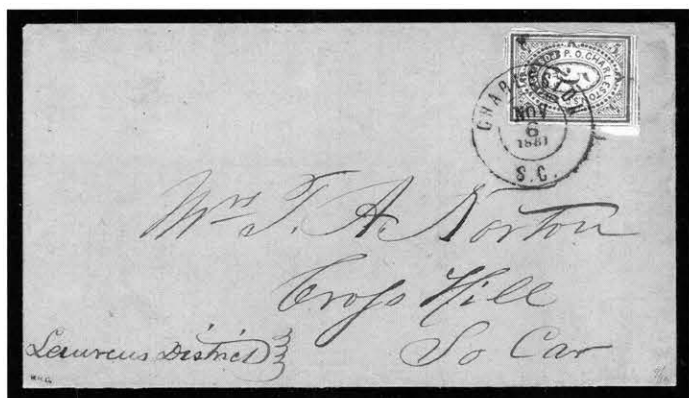 P.O. CHARLESTON
5
CHARLESTON
NOV
6
1861
S.C.
Mrs T. A. Norton
Cross Hill
Laurens District
So Car